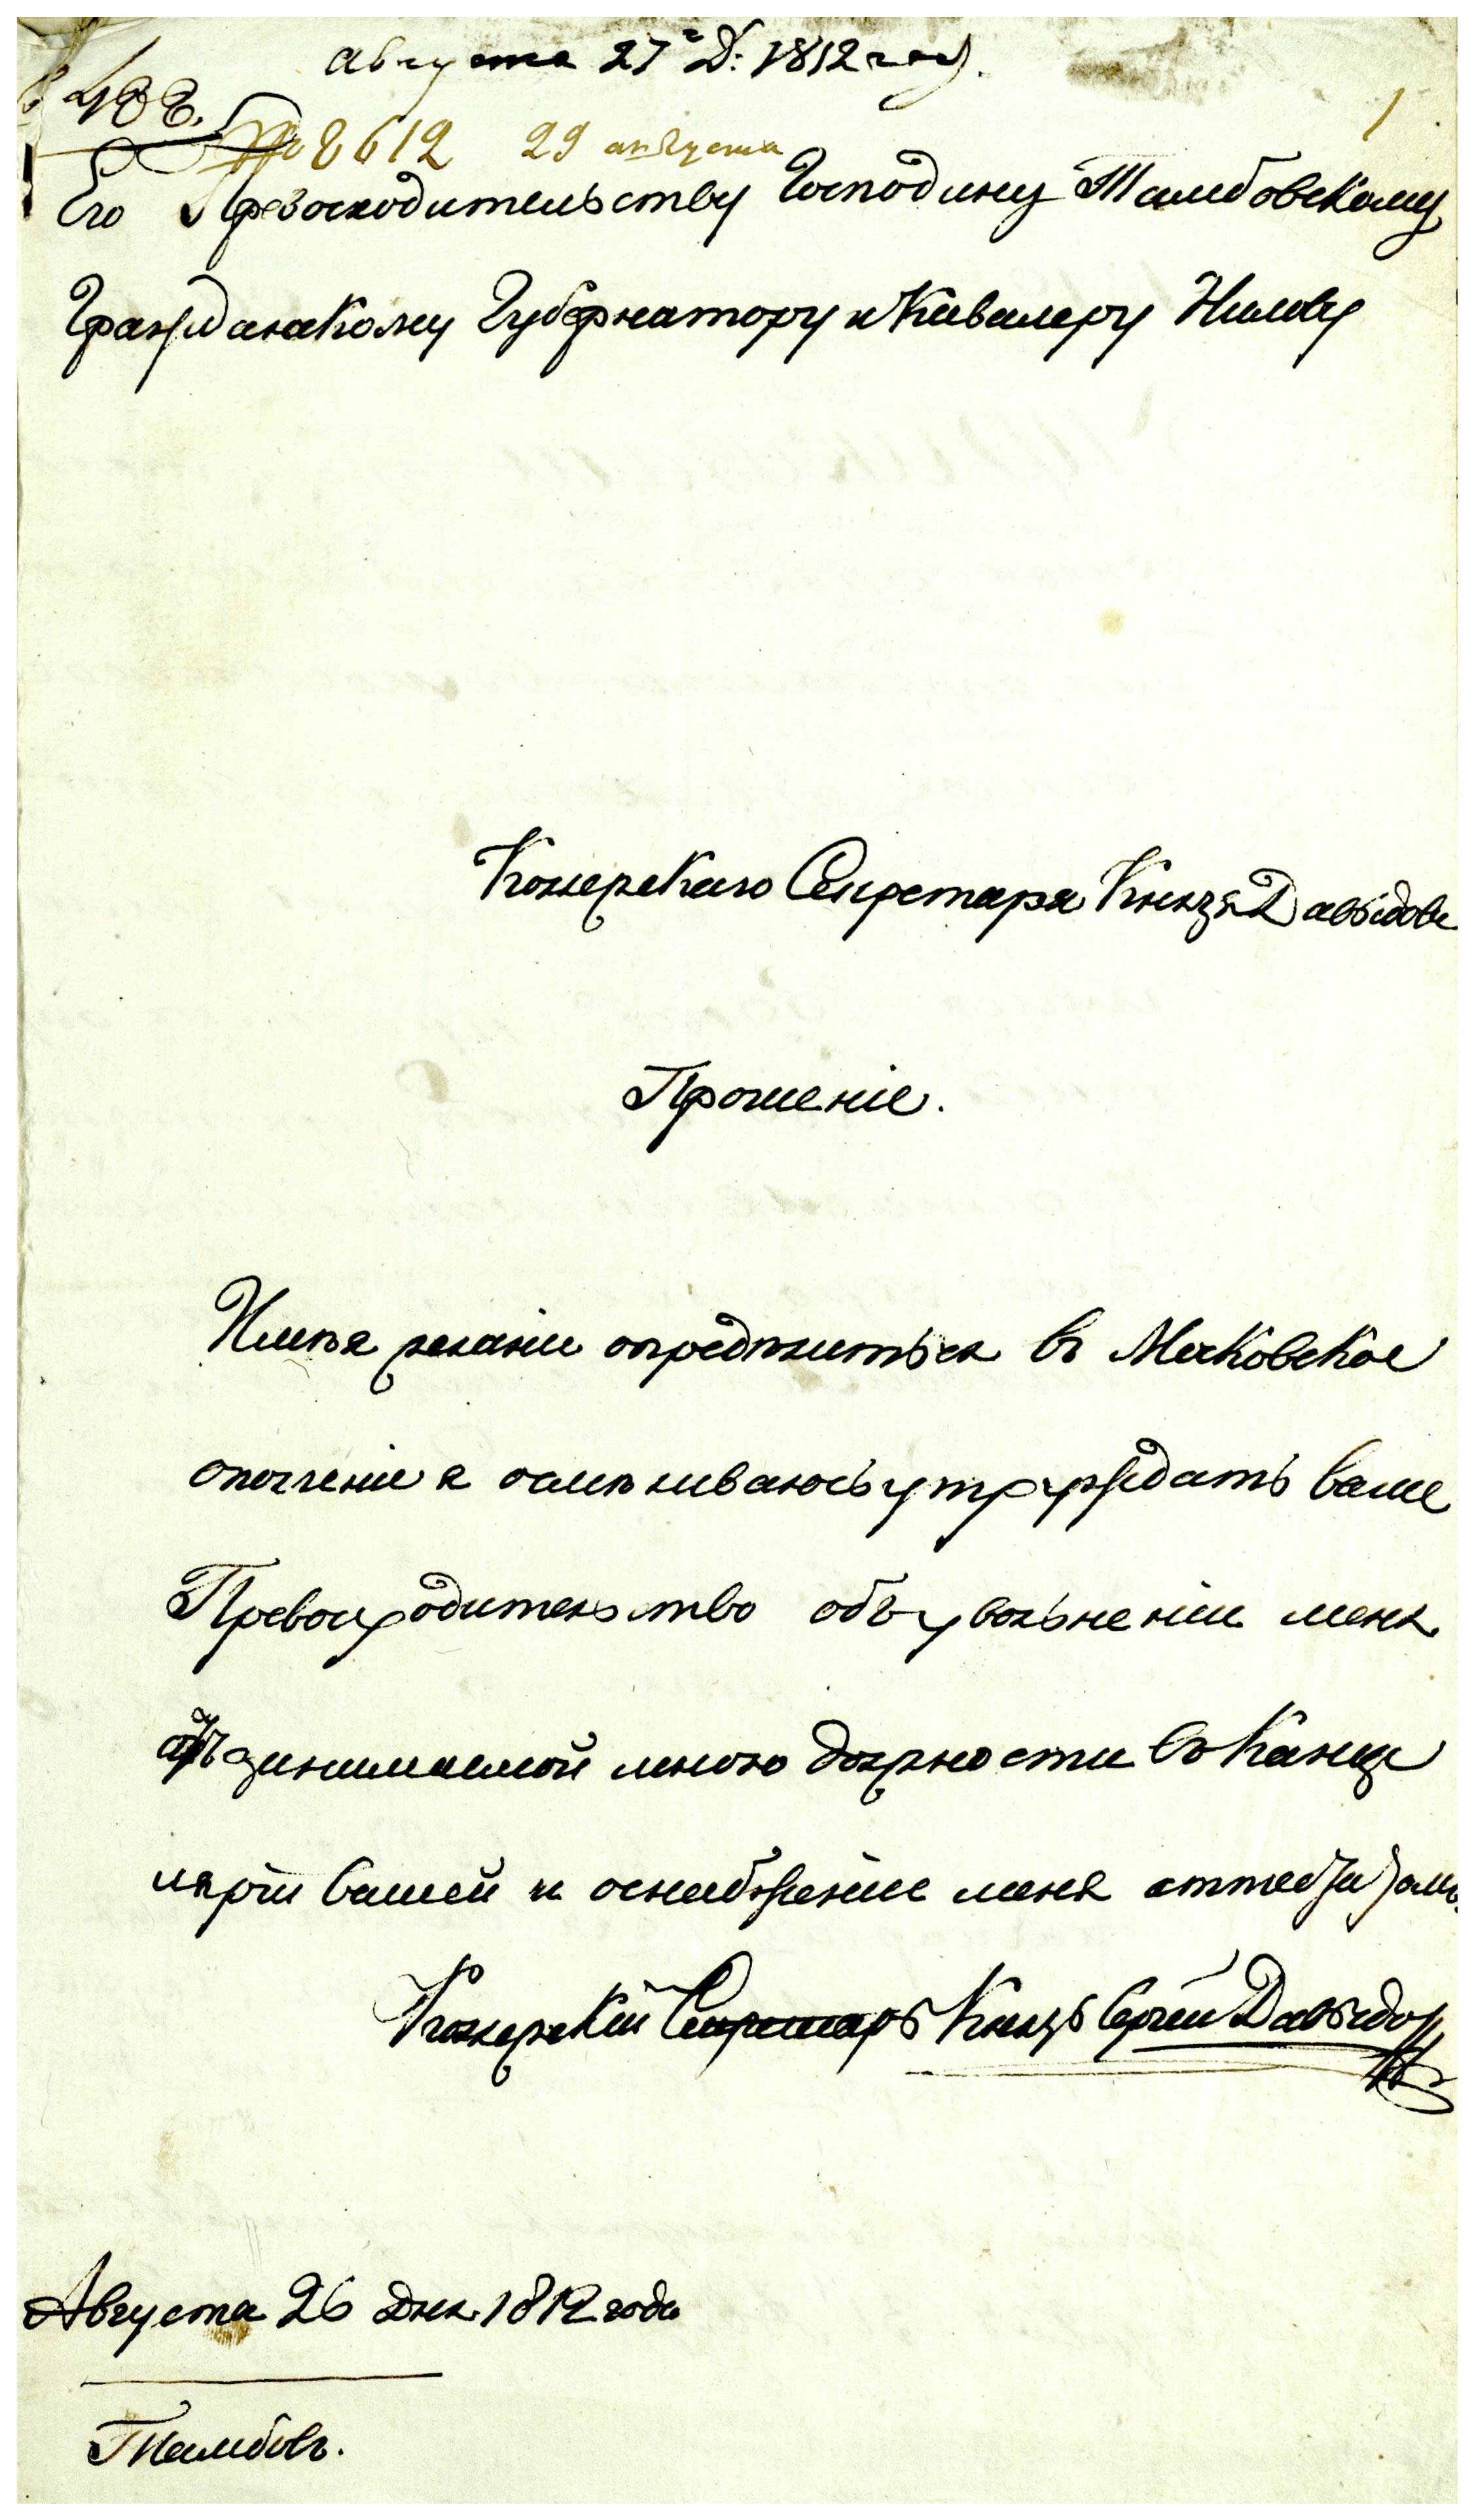 августа 27г Д: 1812 году.
488.
№ 8612 29 августа
1
Его Превосходительству Господину Тамбовскому
Гражданскому Губернатору и Кавалеру Нилову
Колежскаго Секретаря Князя Давыдова
Прошеніе.
Имея желаніи определиться въ Московское
ополченіе я осмеливаюсь утруждать ваше
Превосходительство объ увольненіи меня
отъ занимаемой мною должности въ Канце
ляріи вашей и оснабженіе меня аттестатамъ.
Колежскій Секретарь Князь Сергей Давыдов
Августа 26 дня 1812 года
Тамбовъ.